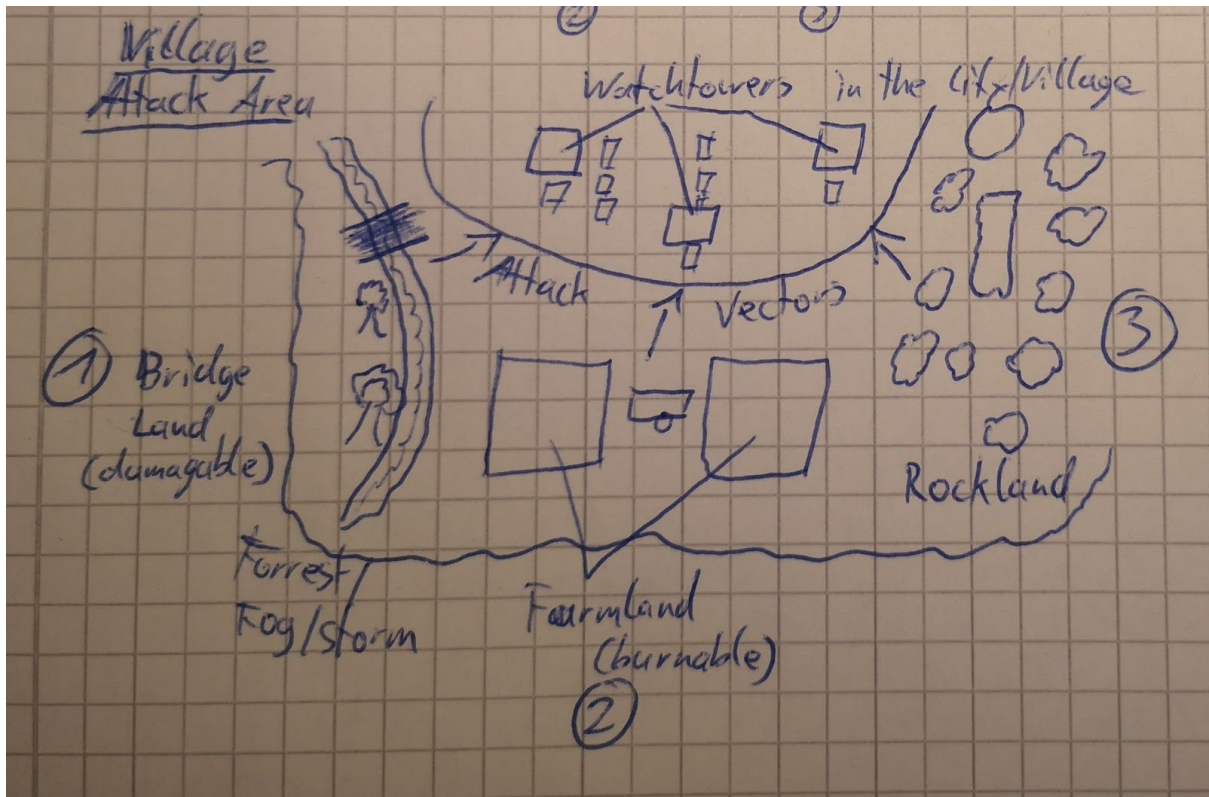 ② ③
Village
Attack Area
Watchtowers in the City/Village
Attack
Vectors
③
① Bridge
Land
(damagable)
Rockland
Forrest
Fog/Storm
Farmland
(burnable)
②